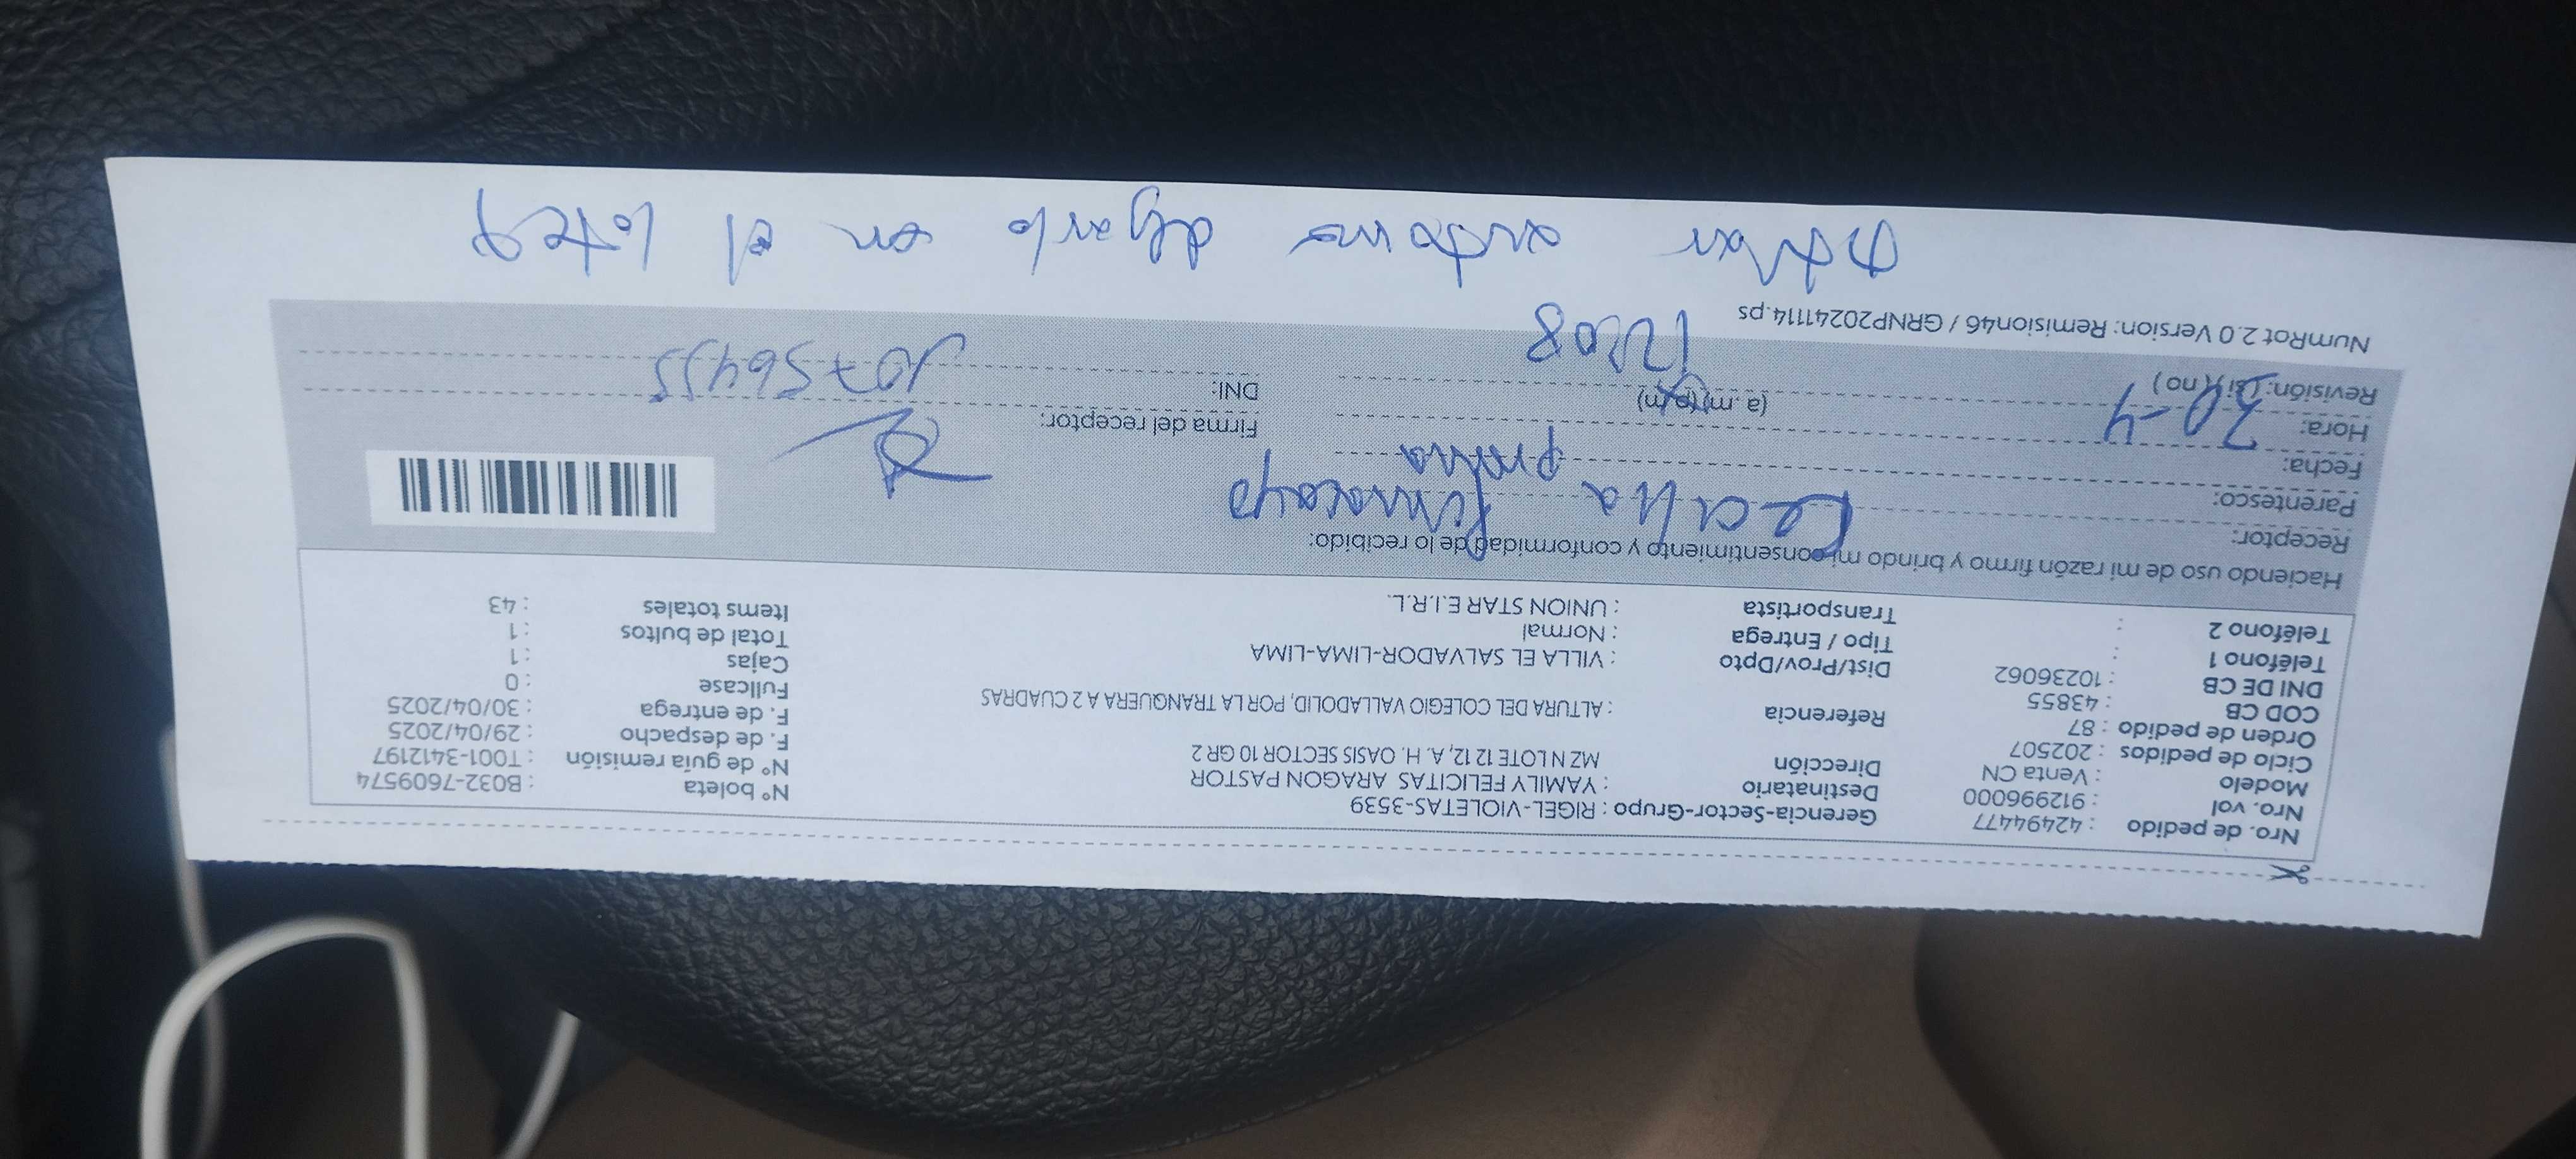 Nro. de pedido : 42494477
Nro. vol : 912996000
Modelo : Venta CN
Ciclo de pedidos : 202507
Orden de pedido : 87
COD CB : 43855
DNI DE CB : 10236062
Teléfono 1 :
Teléfono 2 :
Gerencia-Sector-Grupo : RIGEL-VIOLETAS-3539
Destinatario : YAMILY FELICITAS ARAGON PASTOR
Dirección MZ N LOTE 12 12, A. H. OASIS SECTOR 10 GR 2
Referencia : ALTURA DEL COLEGIO VALLADOLID, POR LA TRANQUERA A 2 CUADRAS
Dist/Prov/Dpto : VILLA EL SALVADOR-LIMA-LIMA
Tipo / Entrega : Normal
Transportista : UNION STAR E.I.R.L.
N° boleta : B032-7609574
N° de guía remisión : T001-3412197
F. de despacho : 29/04/2025
F. de entrega : 30/04/2025
Fullcase : 0
Cajas : 1
Total de bultos : 1
Items totales : 43
Haciendo uso de mi razón firmo y brindo mi consentimiento y conformidad de lo recibido:
Receptor: Cecilia
Parentesco: prima
Fecha: 30-4
Hora: (a.m)(p.m) 12:08
Revisión: (si)(no)
Firma del receptor:
DNI: 10756455
NumRot 2.0 Version: Remision46 / GRNP20241114.ps
dejarlo en el lote 9